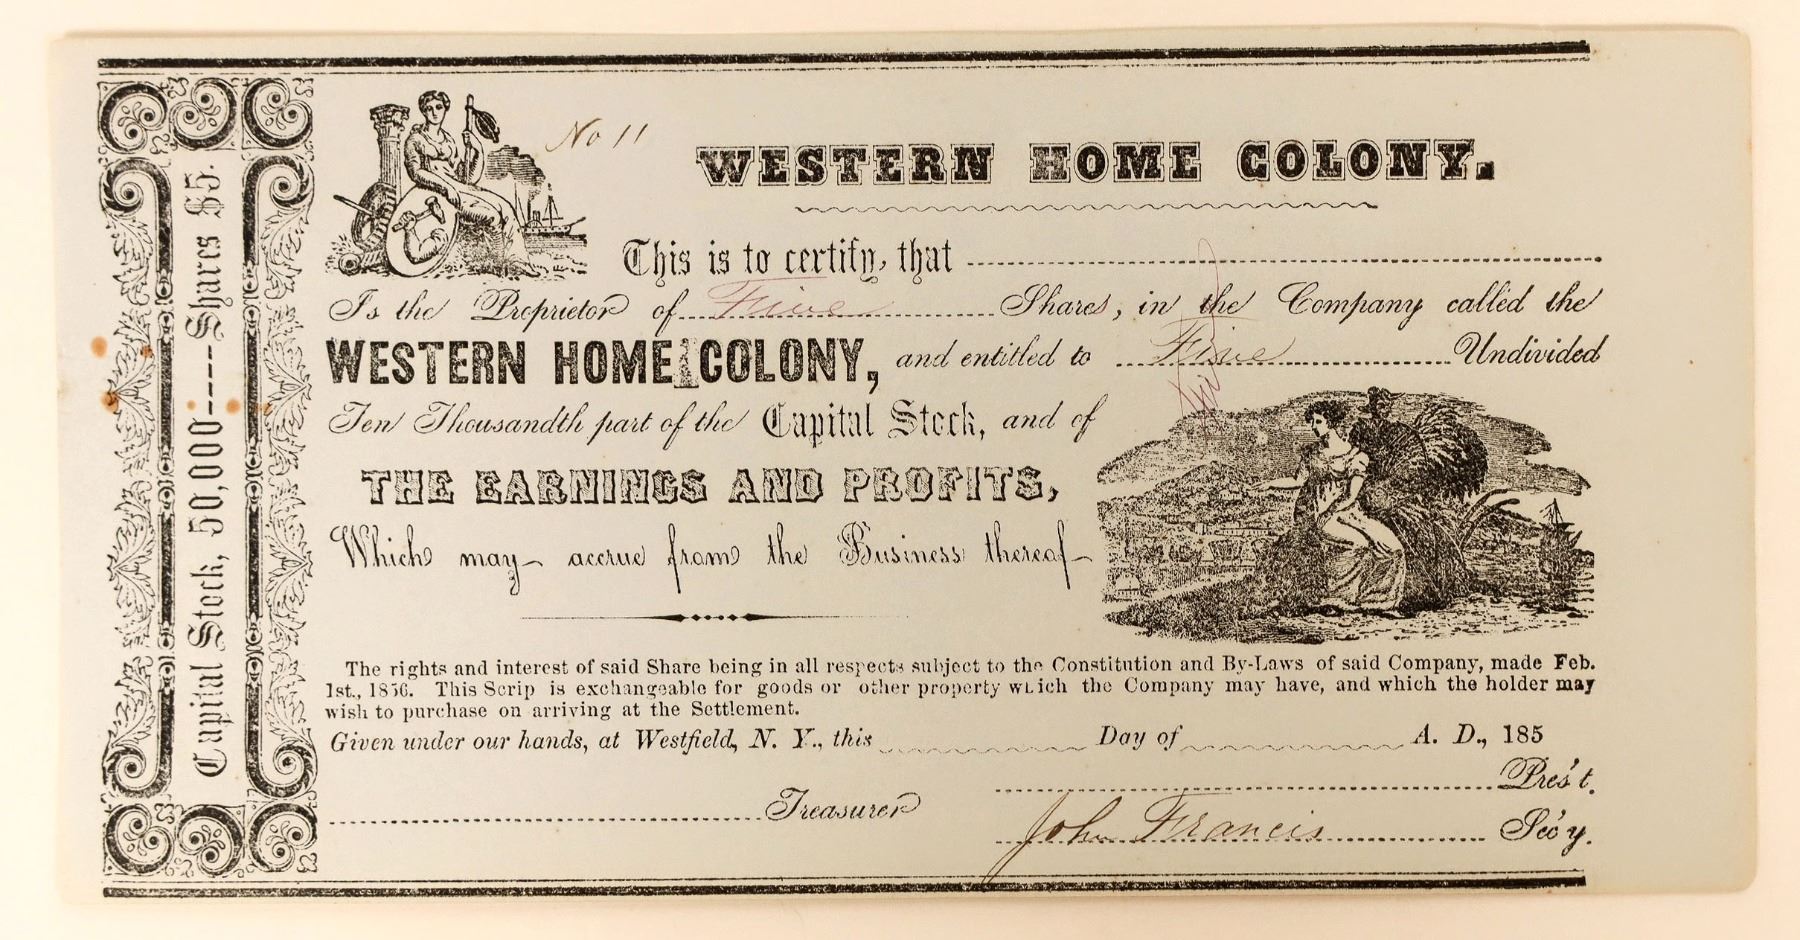 No 11
WESTERN HOME COLONY.
This is to certify, that
Is the Proprietor of Five Shares, in the Company called the
WESTERN HOME COLONY, and entitled to Five Undivided
Ten Thousandth part of the Capital Stock, and of
THE EARNINGS AND PROFITS,
Which may accrue from the Business thereof
The rights and interest of said Share being in all respects subject to the Constitution and By-Laws of said Company, made Feb.
1st., 1856. This Scrip is exchangeable for goods or other property which the Company may have, and which the holder may
wish to purchase on arriving at the Settlement.
Given under our hands, at Westfield, N. Y., this Day of A. D., 185
Pres't.
Treasurer
John Francis Sec'y.
Capital Stock, 50,000----Shares $5.